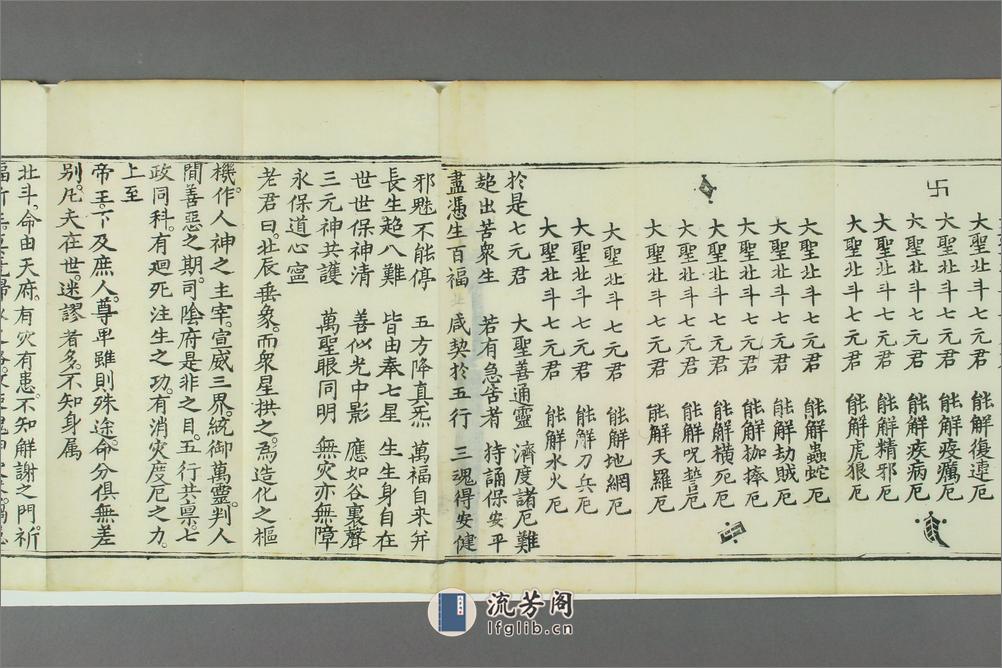 卐
大聖北斗七元君 能解復連厄
大聖北斗七元君 能解疫癘厄
大聖北斗七元君 能解疾病厄
大聖北斗七元君 能解精邪厄
大聖北斗七元君 能解虎狼厄
大聖北斗七元君 能解蟲蛇厄
大聖北斗七元君 能解劫賊厄
大聖北斗七元君 能解枷捧厄
大聖北斗七元君 能解橫死厄
大聖北斗七元君 能解呪誓厄
大聖北斗七元君 能解天羅厄
大聖北斗七元君 能解地網厄
大聖北斗七元君 能解刀兵厄
大聖北斗七元君 能解水火厄
於是七元君 大聖善通靈 濟度諸厄難
超出苦衆生 若有急告者 持誦保安平
盡憑生百福 咸契於五行 三魂得安健
邪魅不能停 五方降真炁 萬福自来并
長生超八難 皆由奉七星 生生身自在
世世保神清 善似光中影 應如谷裏聲
三元神共護 萬聖眼同明 無灾亦無障
永保道心寧
老君曰。北辰垂象。而衆星拱之。為造化之樞
機。作人神之主宰。宣威三界。統御萬靈。判人
間善惡之期。司陰府是非之目。五行共禀。七
政同科。有廻死注生之功。有消灾度厄之力。
上至
帝王。下及庶人。尊卑雖則殊途。命分俱無差
别。凡夫在世。迷謬者多。不知身属
北斗。命由天府。有灾有患。不知解謝之門。祈
流芳阁
lfglib.cn